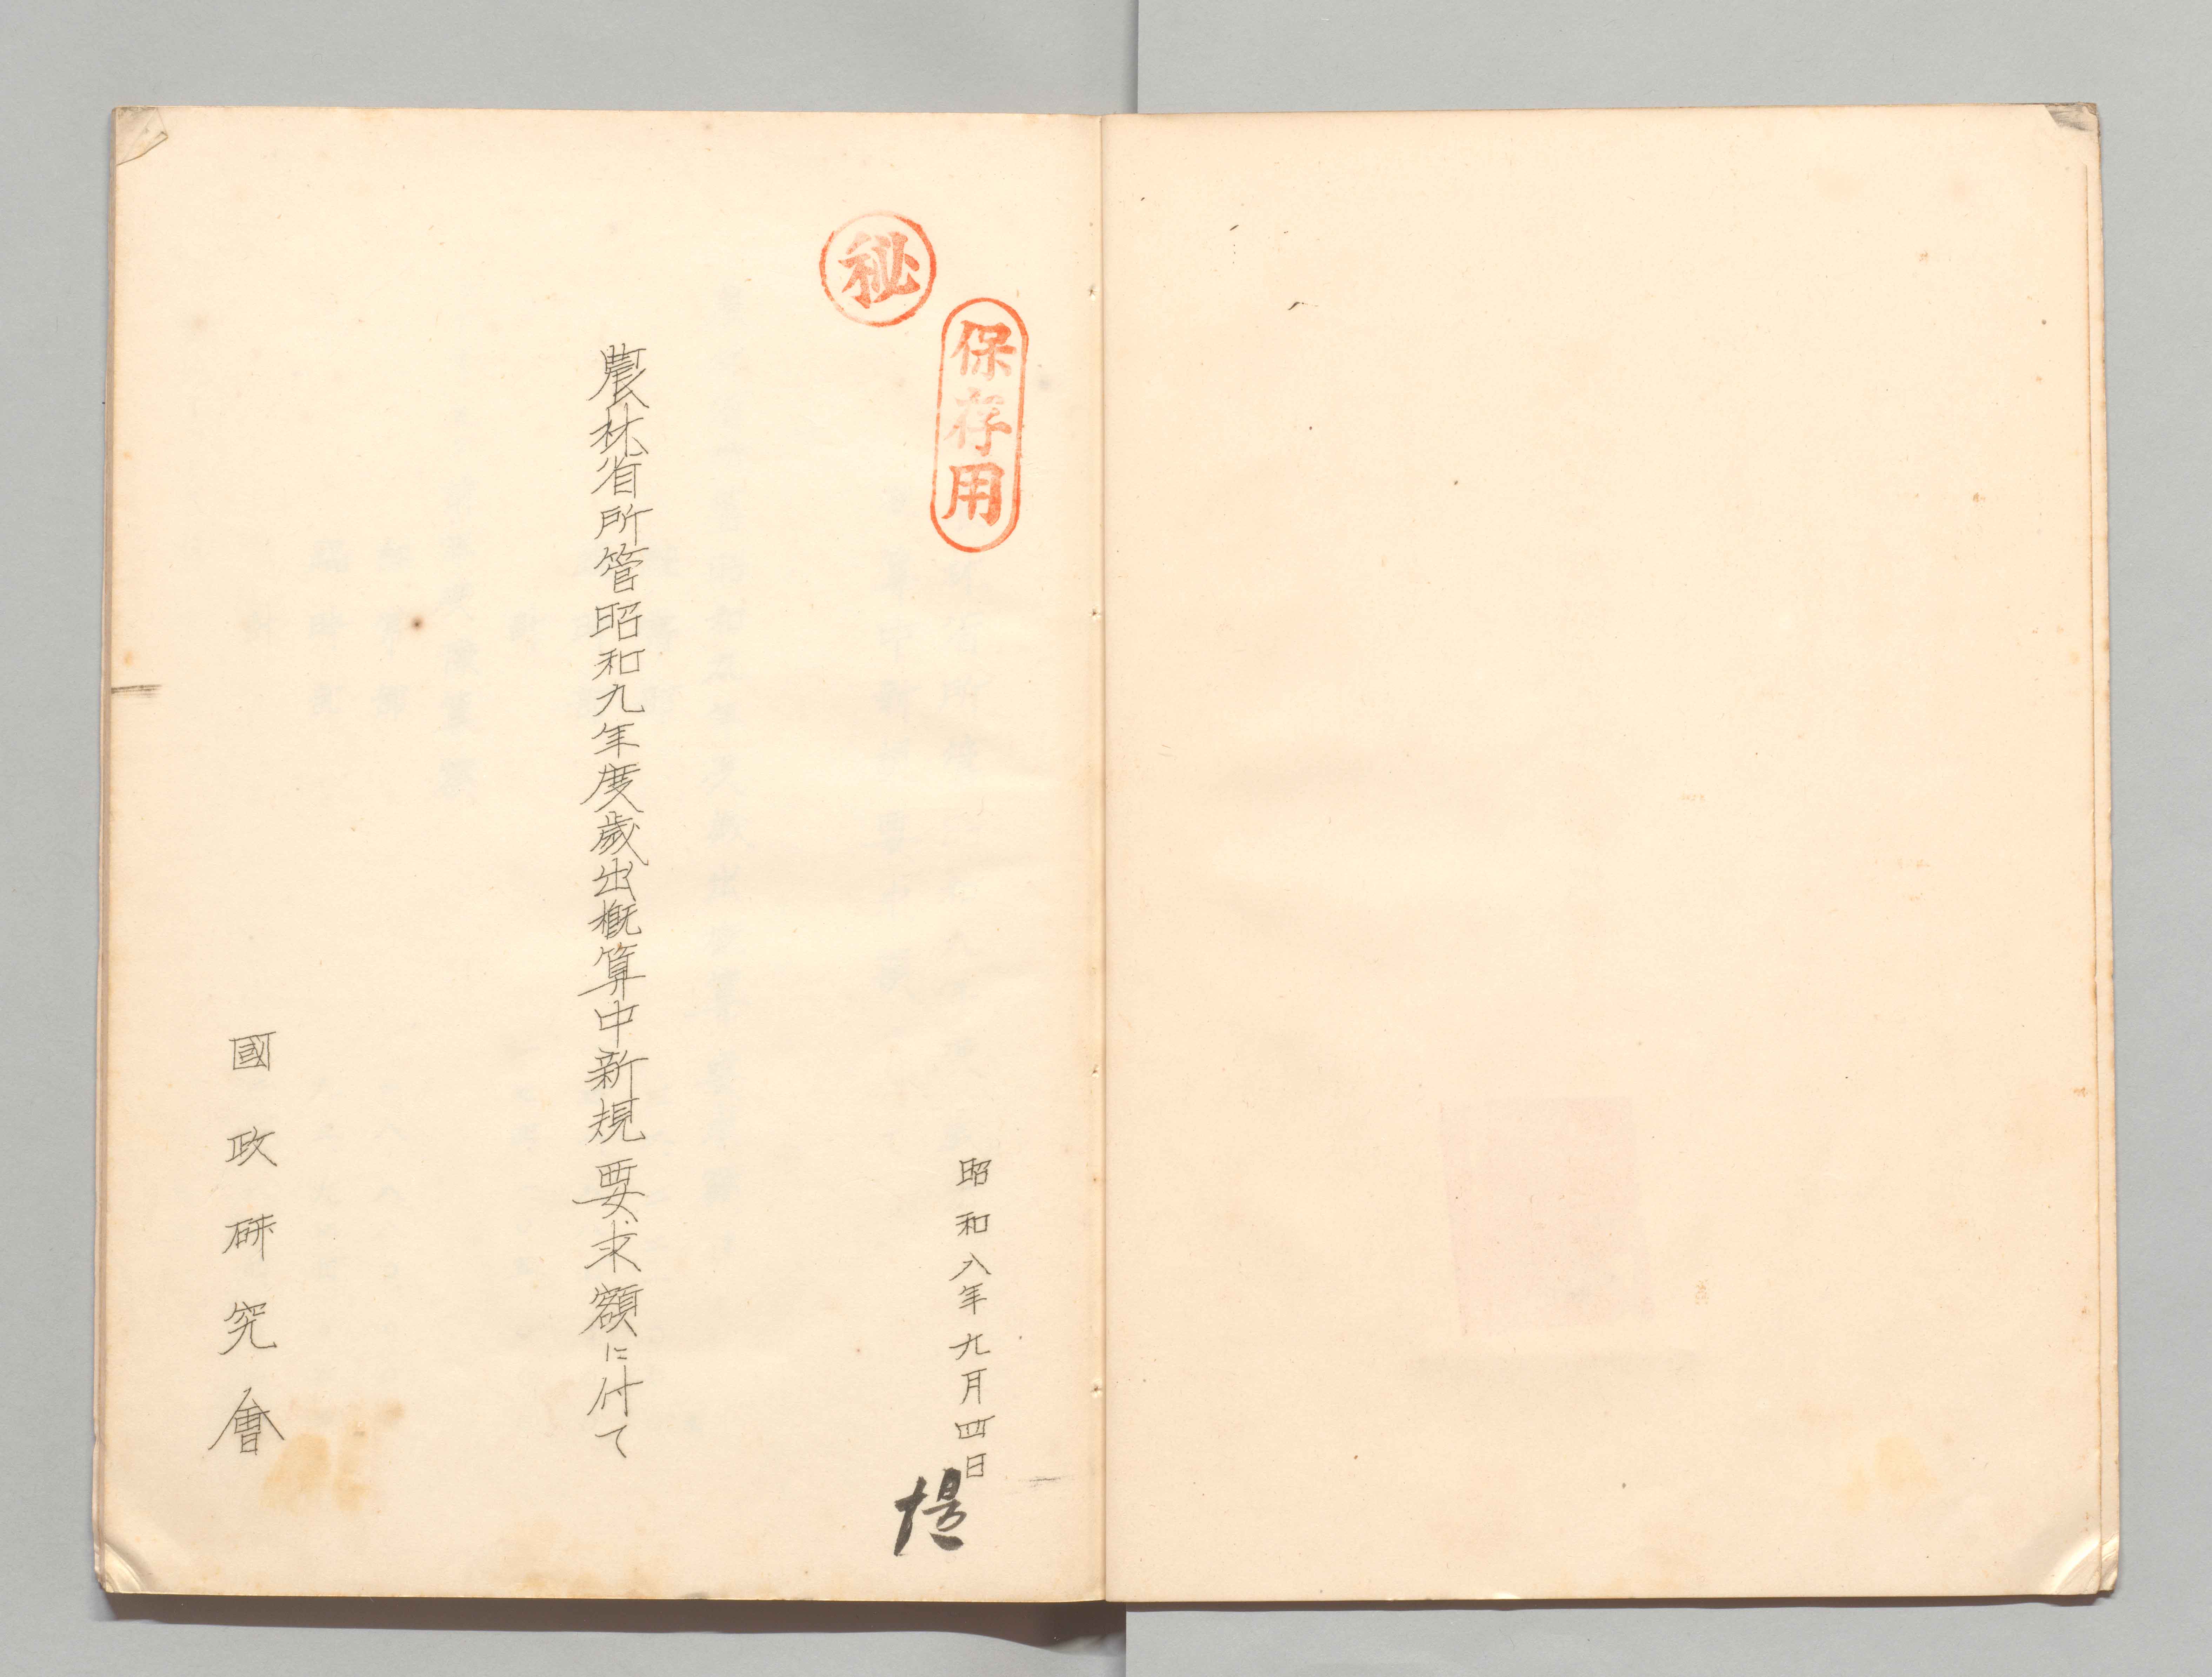 保存用
秘
昭和八年九月四日
提
農林省所管昭和九年度歲出概算中新規要求額に付て
國政研究會